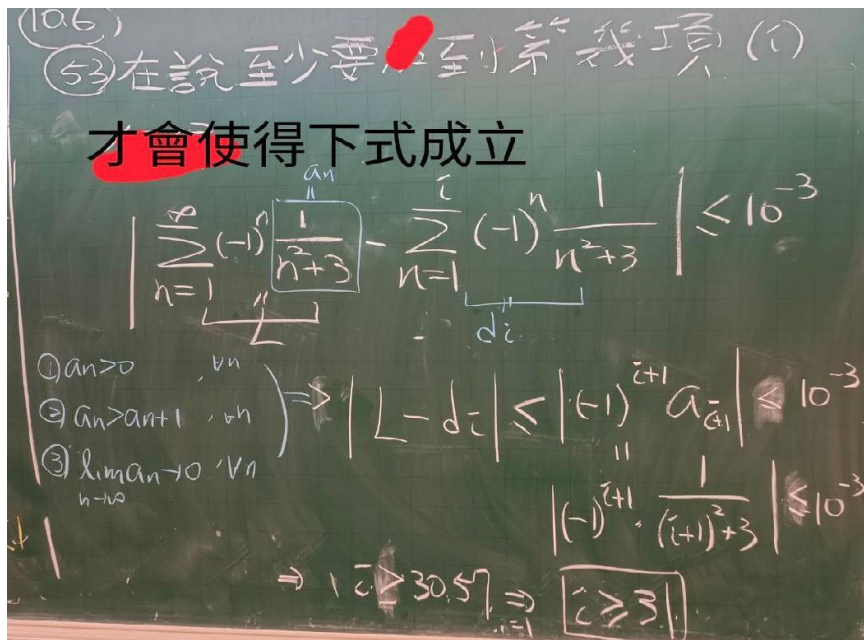 10.6
53 在說至少要到第幾項 (i)
才會使得下式成立
an
=
| ∑_{n=1}^{∞} (-1)^n 1/(n²+3) - ∑_{n=1}^{i} (-1)^n 1/(n²+3) | ≤ 10^{-3}
L di
① an>0 , ∀n
② an>an+1 , ∀n
③ lim_{n→∞} an→0 , ∀n
⇒ | L - di | ≤ | (-1)^{i+1} a_{i+1} | ≤ 10^{-3}
=
| (-1)^{i+1} · 1/((i+1)²+3) | ≤ 10^{-3}
⇒ i ≥ 30.57 ⇒ i ≥ 31